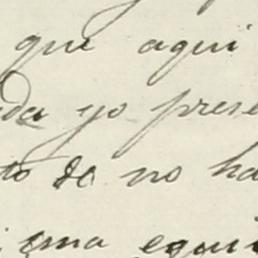 que aqui
da yo prese
to de no ha
una equi